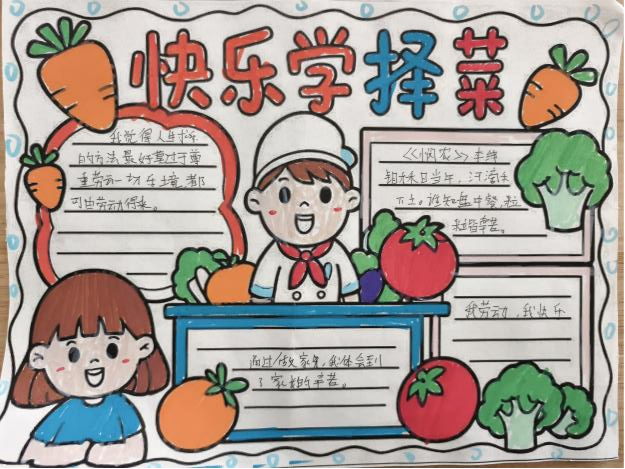 快乐学择菜
我觉得人生求乐
的方法最好莫过于尊
重劳动一切乐境,都
可由劳动得来。
《悯农》李绅
锄禾日当午,汗滴禾
下土。谁知盘中餐,粒
粒皆辛苦。
我劳动,我快乐
通过做家务,我体会到
了家长的辛苦。